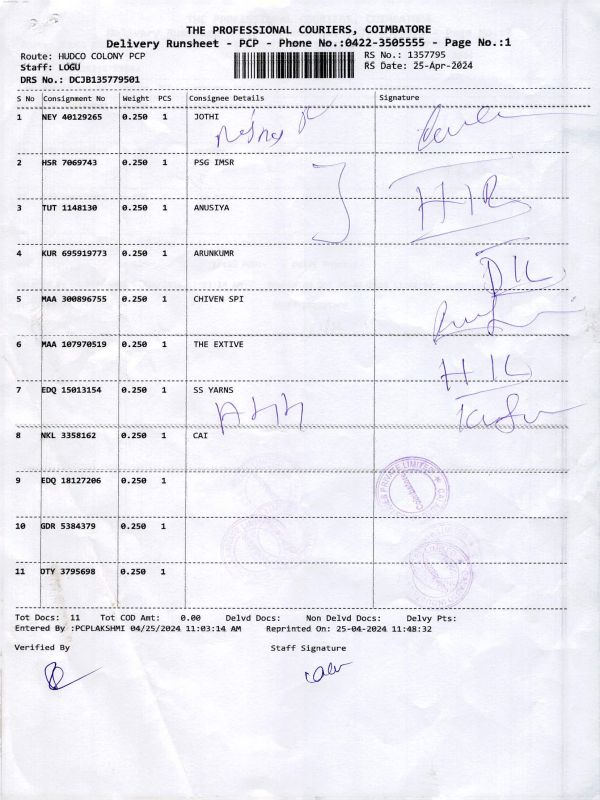 THE PROFESSIONAL COURIERS, COIMBATORE
Delivery Runsheet - PCP - Phone No.:0422-3505555 - Page No.:1
Route: HUDCO COLONY PCP RS No.: 1357795
Staff: LOGU RS Date: 25-Apr-2024
DRS No.: DCJB135779501
S No Consignment No Weight PCS Consignee Details Signature
1 NEY 40129265 0.250 1 JOTHI
2 HSR 7069743 0.250 1 PSG IMSR
3 TUT 1148130 0.250 1 ANUSIYA
4 KUR 695919773 0.250 1 ARUNKUMR
DIL
5 MAA 300896755 0.250 1 CHIVEN SPI
6 MAA 107970519 0.250 1 THE EXTIVE
HIL
7 EDQ 15013154 0.250 1 SS YARNS
8 NKL 3358162 0.250 1 CAI
9 EDQ 18127206 0.250 1
PRIVATE LIMITED
10 GDR 5384379 0.250 1
11 OTY 3795698 0.250 1
Tot Docs: 11 Tot COD Amt: 0.00 Delvd Docs: Non Delvd Docs: Delvy Pts:
Entered By :PCPLAKSHMI 04/25/2024 11:03:14 AM Reprinted On: 25-04-2024 11:48:32
Verified By Staff Signature